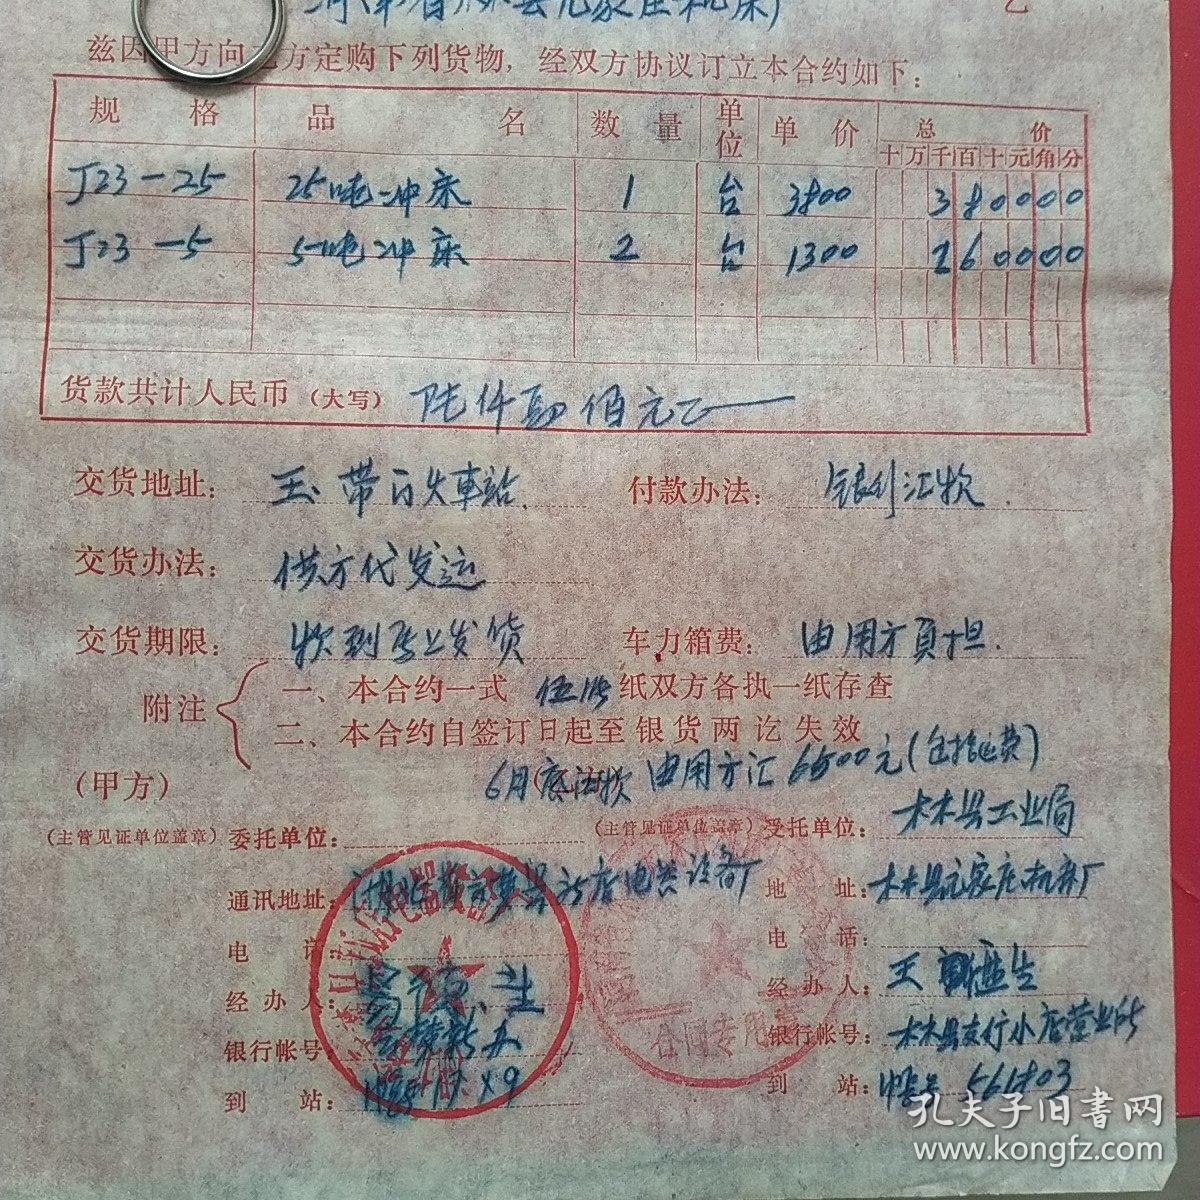 兹因甲方向乙方定购下列货物，经双方协议订立本合约如下：
规格 品名 数量 单位 单价 总价
十万千百十元角分
J23-25 25吨冲床 1 台 3800 380000
J23-5 5吨冲床 2 台 1300 260000
货款共计人民币（大写） 陆仟 佰元
交货地址： 火車站 付款办法： 银行汇款
交货办法： 供方代发运
交货期限： 款到马上发货 车力箱费： 由用方負担
附注
一、本合约一式 伍 纸双方各执一纸存查
二、本合约自签订日起至银货两讫失效
6月底汇款 由用方汇6500元(包括运费)
（甲方）
（主管见证单位盖章）委托单位： （主管见证单位盖章）受托单位： 林县工业局
通讯地址： 电器设备厂 地址： 林县元家庄机床厂
电话： 电话：
经办人： 经办人： 王 生
银行帐号： 银行帐号： 林县支行小店营业所
到站： 到站： 帐号 561803
合同专用章
孔夫子旧书网
www.kongfz.com